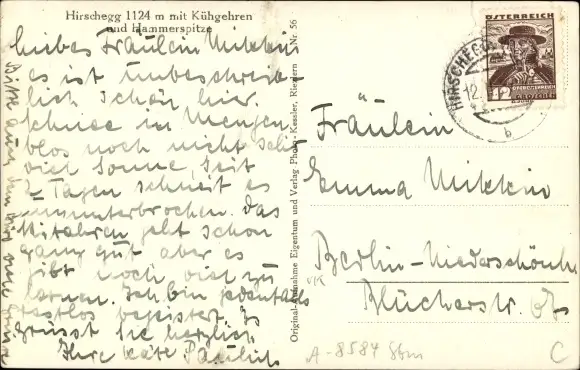 Hirschegg 1124 m mit Kühgehren
und Hammerspitze
liebes Fräulein
es ist unbeschreib
lich schön hier
Schnee in Mengen
blos noch nicht sehr
viel Sonne, seit
2 Tagen schneit es
ununterbrochen. Das
Skifahren geht schon
ganz gut aber es
gibt noch viel zu
lernen. Ich bin jedenfalls
restlos begeistert. Es
grüsst Sie herzlich
Ihre Käte
Bitte
Original-Aufnahme Eigentum und Verlag Photo-Kessler, Riezlern Nr. 56
ÖSTERREICH
12
GROSCHEN
HIRSCHEGG
12.
b
Fräulein
Emma
Berlin-Niederschönh
Blücherstr.
A-8584 Sbm
C